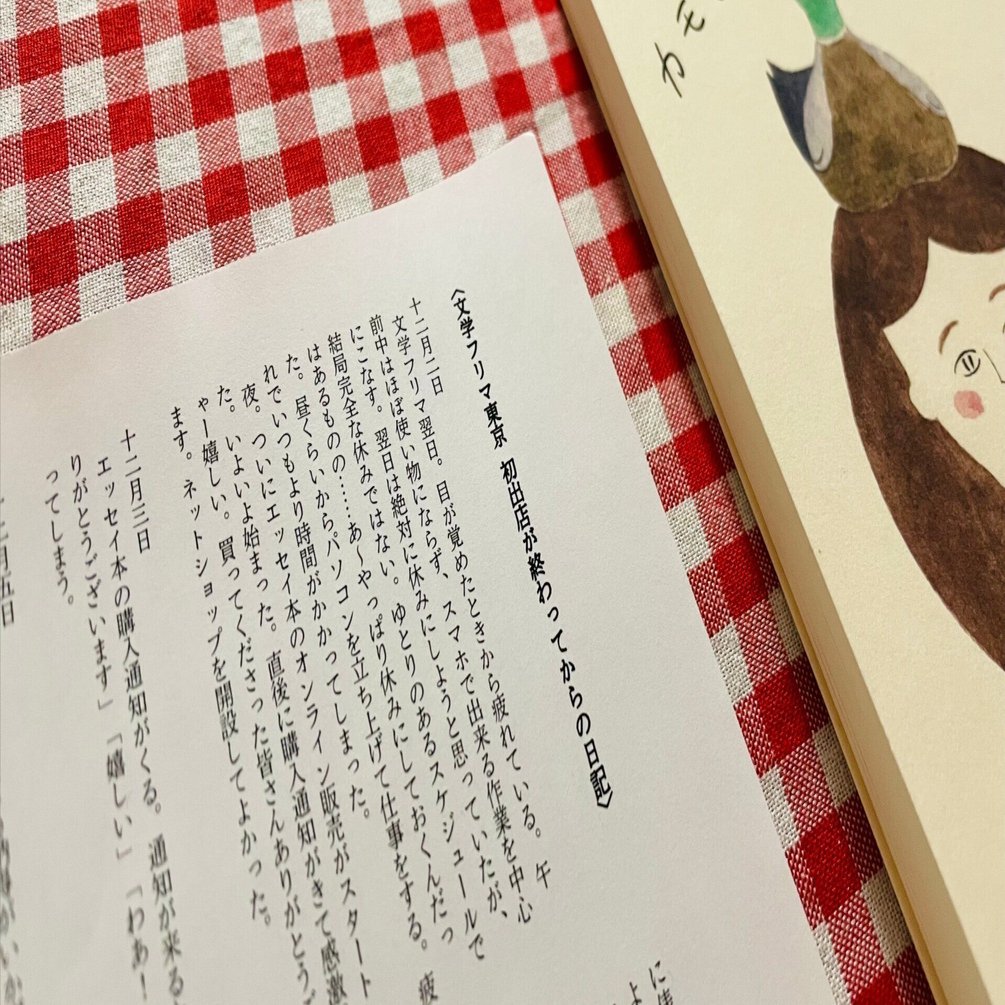 〈文学フリマ東京 初出店が終わってからの日記〉
十二月二日
文学フリマ翌日。目が覚めたときから疲れている。午
前中はほぼ使い物にならず、スマホで出来る作業を中心
にこなす。翌日は絶対に休みにしようと思っていたが、
結局完全な休みではない。ゆとりのあるスケジュールで
はあるものの……あ〜やっぱり休みにしておくんだっ
た。昼くらいからパソコンを立ち上げて仕事をする。疲
れでいつもより時間がかかってしまった。
夜。ついにエッセイ本のオンライン販売がスタート
た。いよいよ始まった。直後に購入通知がきて感激
ゃー嬉しい。買ってくださった皆さんありがとうご
ます。ネットショップを開設してよかった。
十二月三日
エッセイ本の購入通知がくる。通知が来る
りがとうございます」「嬉しい」「わあ！
ってしまう。
二月五日
に
よ
カモ